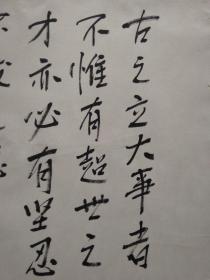 古之立大事者
不惟有超世之
才亦必有坚忍